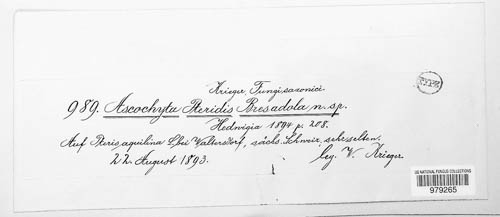 Krieger, Fungi saxonici.
989. Ascochyta Pteridis Bresadola n. sp.
Hedwigia 1894 p. 208.
Auf Pteris aquilina L. bei Waltersdorf, sächs. Schweiz, sehr selten.
22. August 1893.
leg. W. Krieger.
US NATIONAL FUNGUS COLLECTIONS
979265